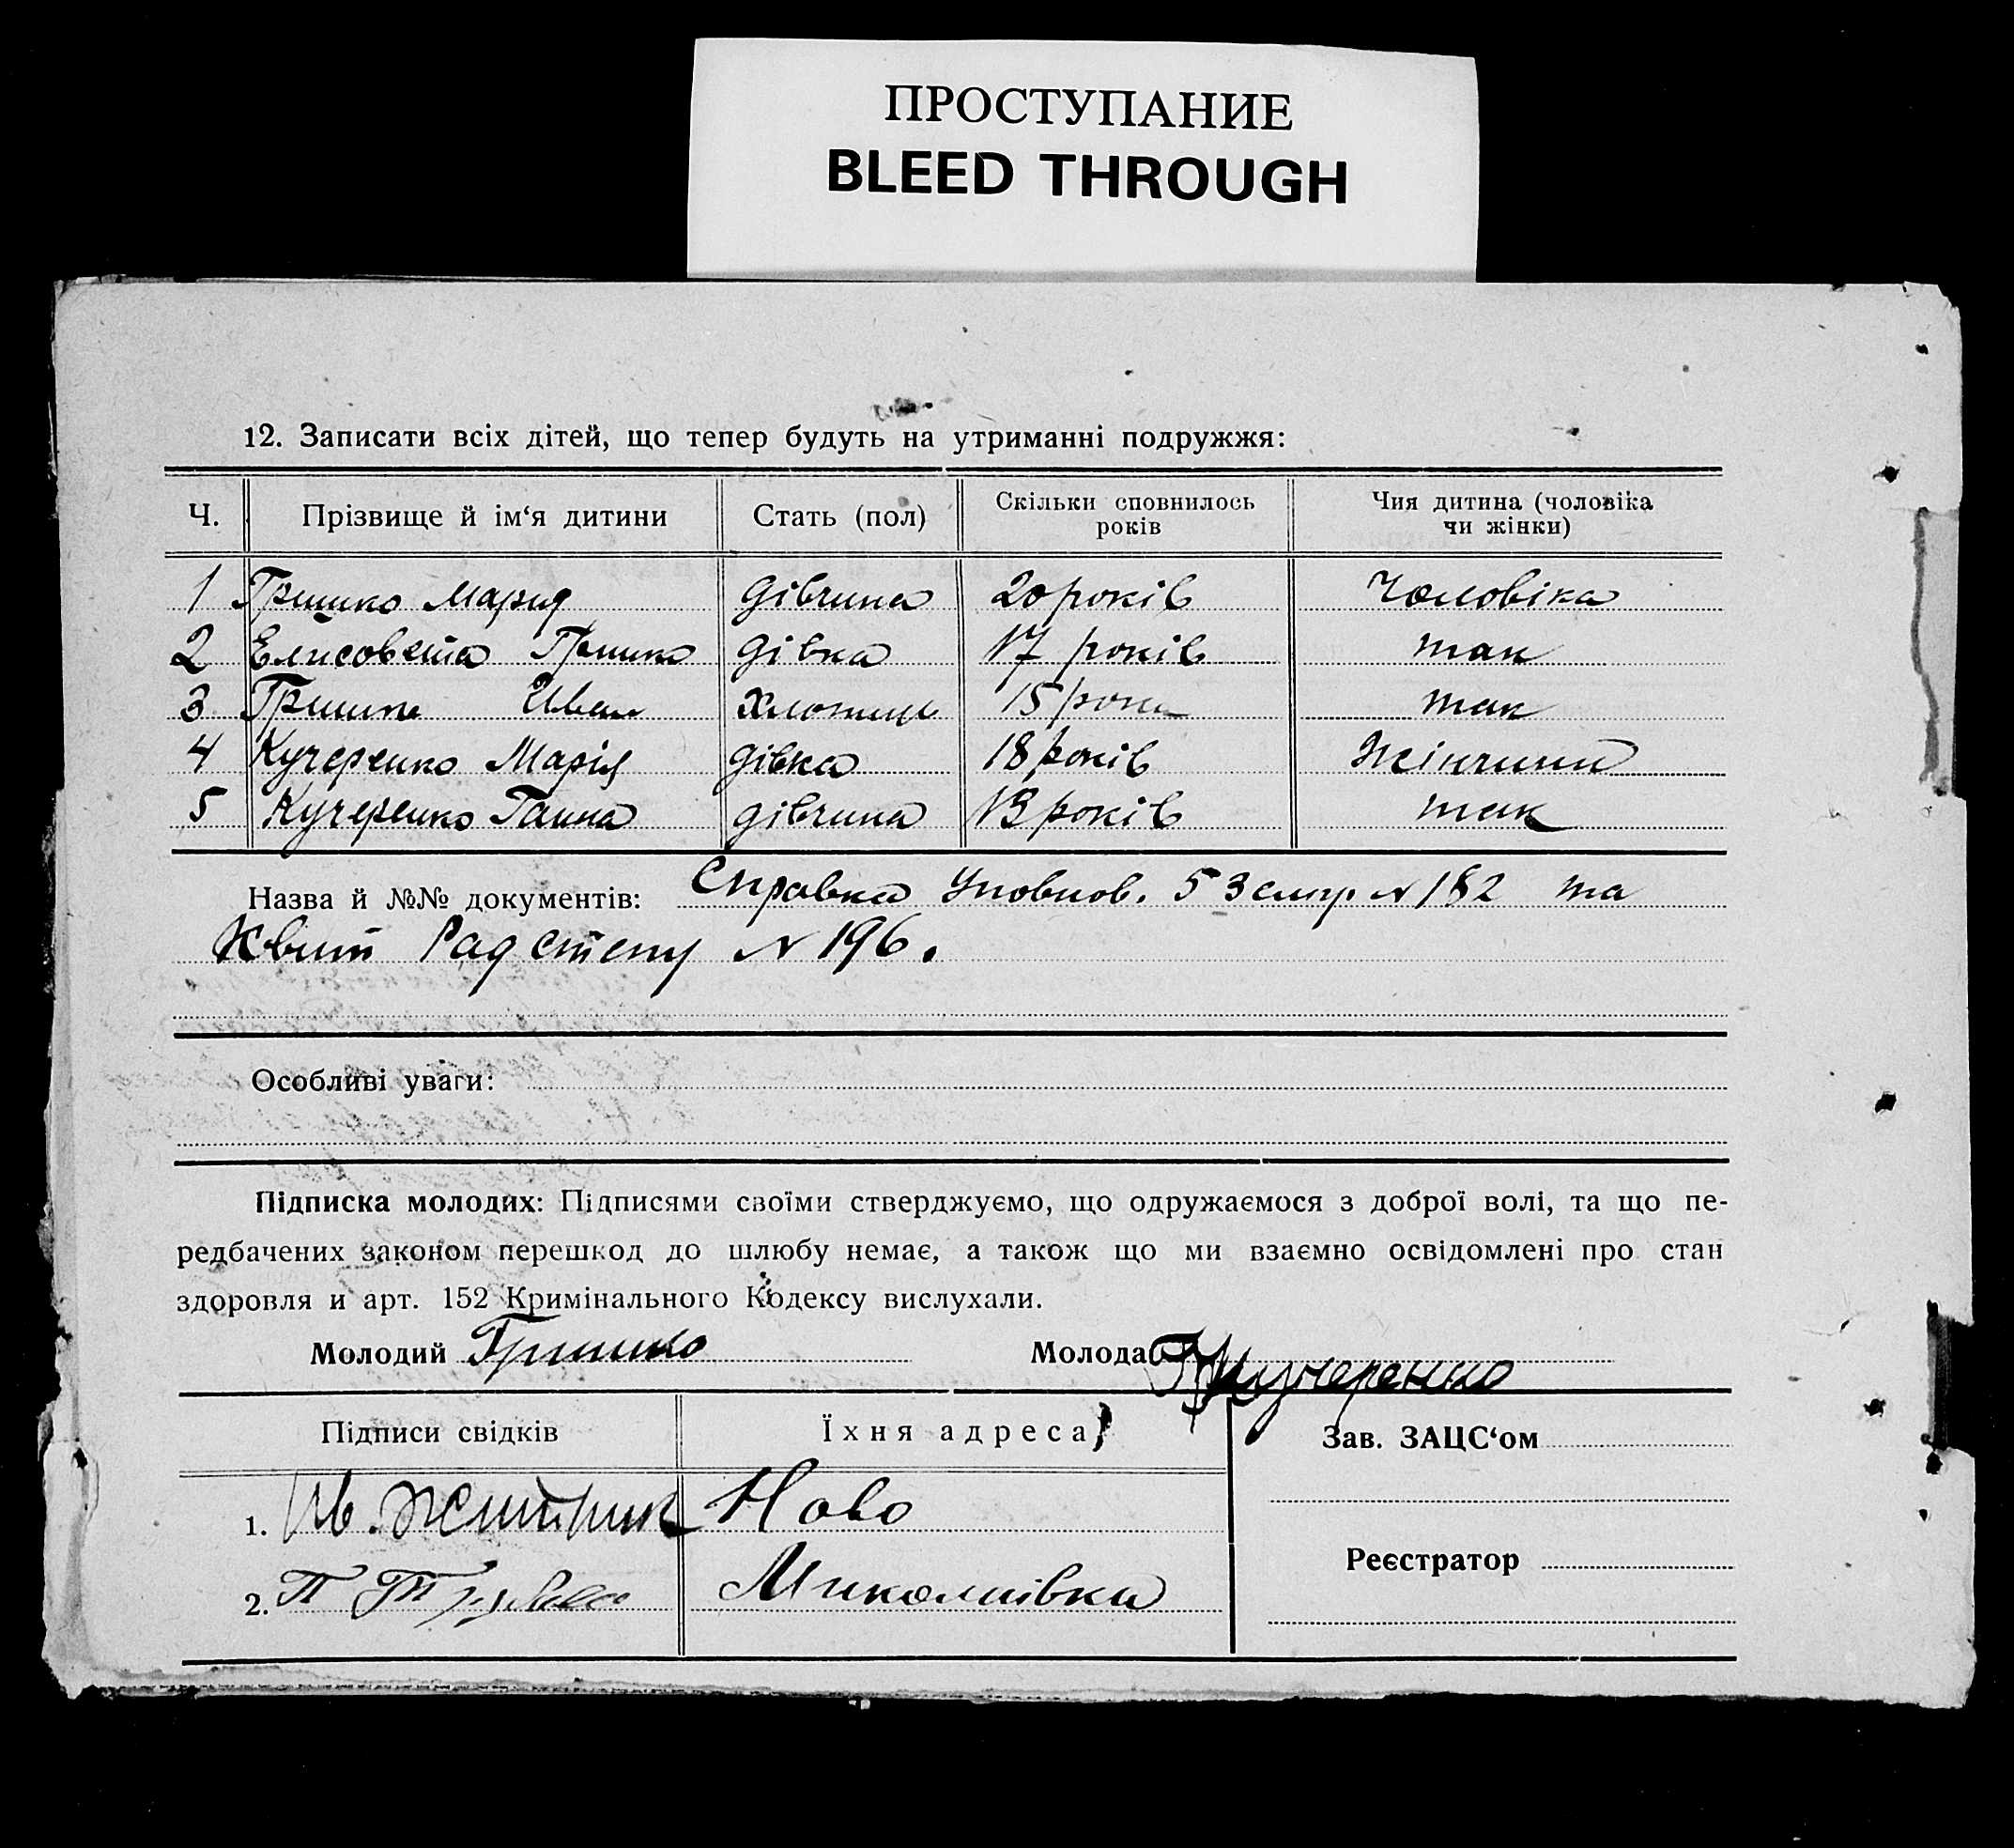 ПРОСТУПАНИЕ
BLEED THROUGH
12. Записати всіх дітей, що тепер будуть на утриманні подружжя:
Ч. Прізвище й ім‘я дитини Стать (пол) Скільки сповнилось років Чия дитина (чоловіка чи жінки)
1 Гришко Мария дівчина 20 років Чоловіка
2 Елисовета Гришко дівка 17 років так
3 Гришко Иван хлопець 15 роки так
4 Кучеренко Марія дівка 18 років Жінчини
5 Кучеренко Ганна дівчина 13 років так
Назва й №№ документів: Справка Уповнов. 5 земгр N 182 та
Квит Рад степу N 196.
Особливі уваги:
Підписка молодих: Підписями своїми стверджуємо, що одружаємося з доброї волі, та що пе-
редбачених законом перешкод до шлюбу немає, а також що ми взаємно освідомлені про стан
здоровля и арт. 152 Кримінального Кодексу вислухали.
Молодий Гришко Молода Кучеренко
Підписи свідків Їхня адреса Зав. ЗАЦС‘ом
1. Ив. Ново
Реєстратор
2. П Миколаівка